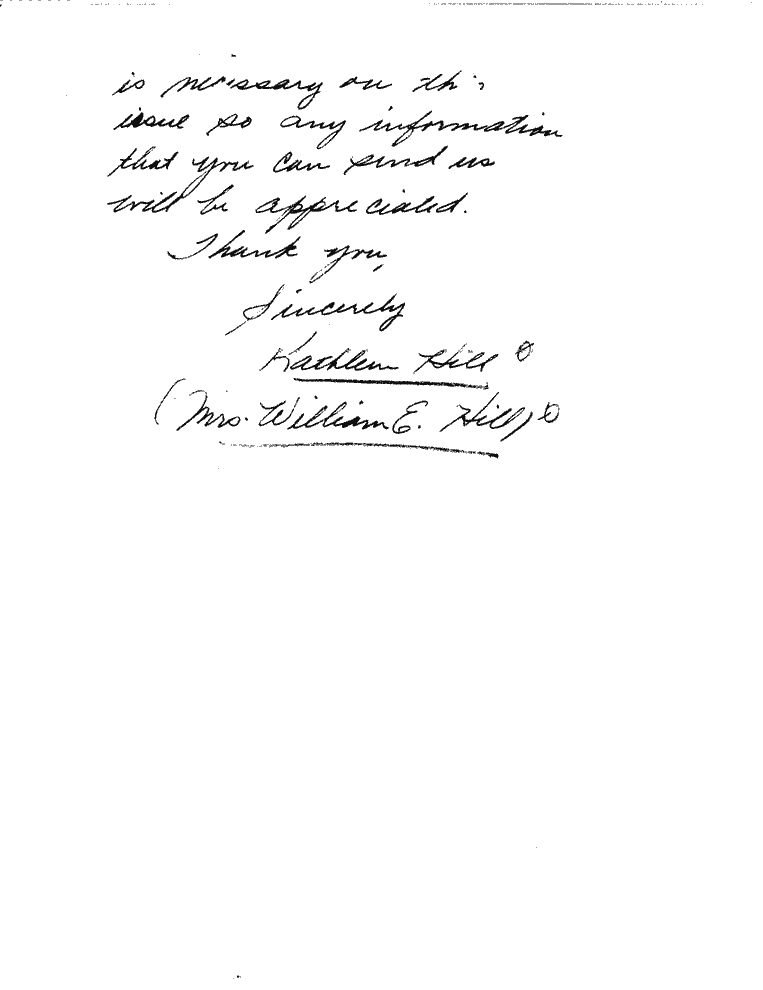 is necessary on this
issue so any information
that you can send us
will be appreciated.
Thank you,
Sincerely
Kathleen Hill
(Mrs. William E. Hill)